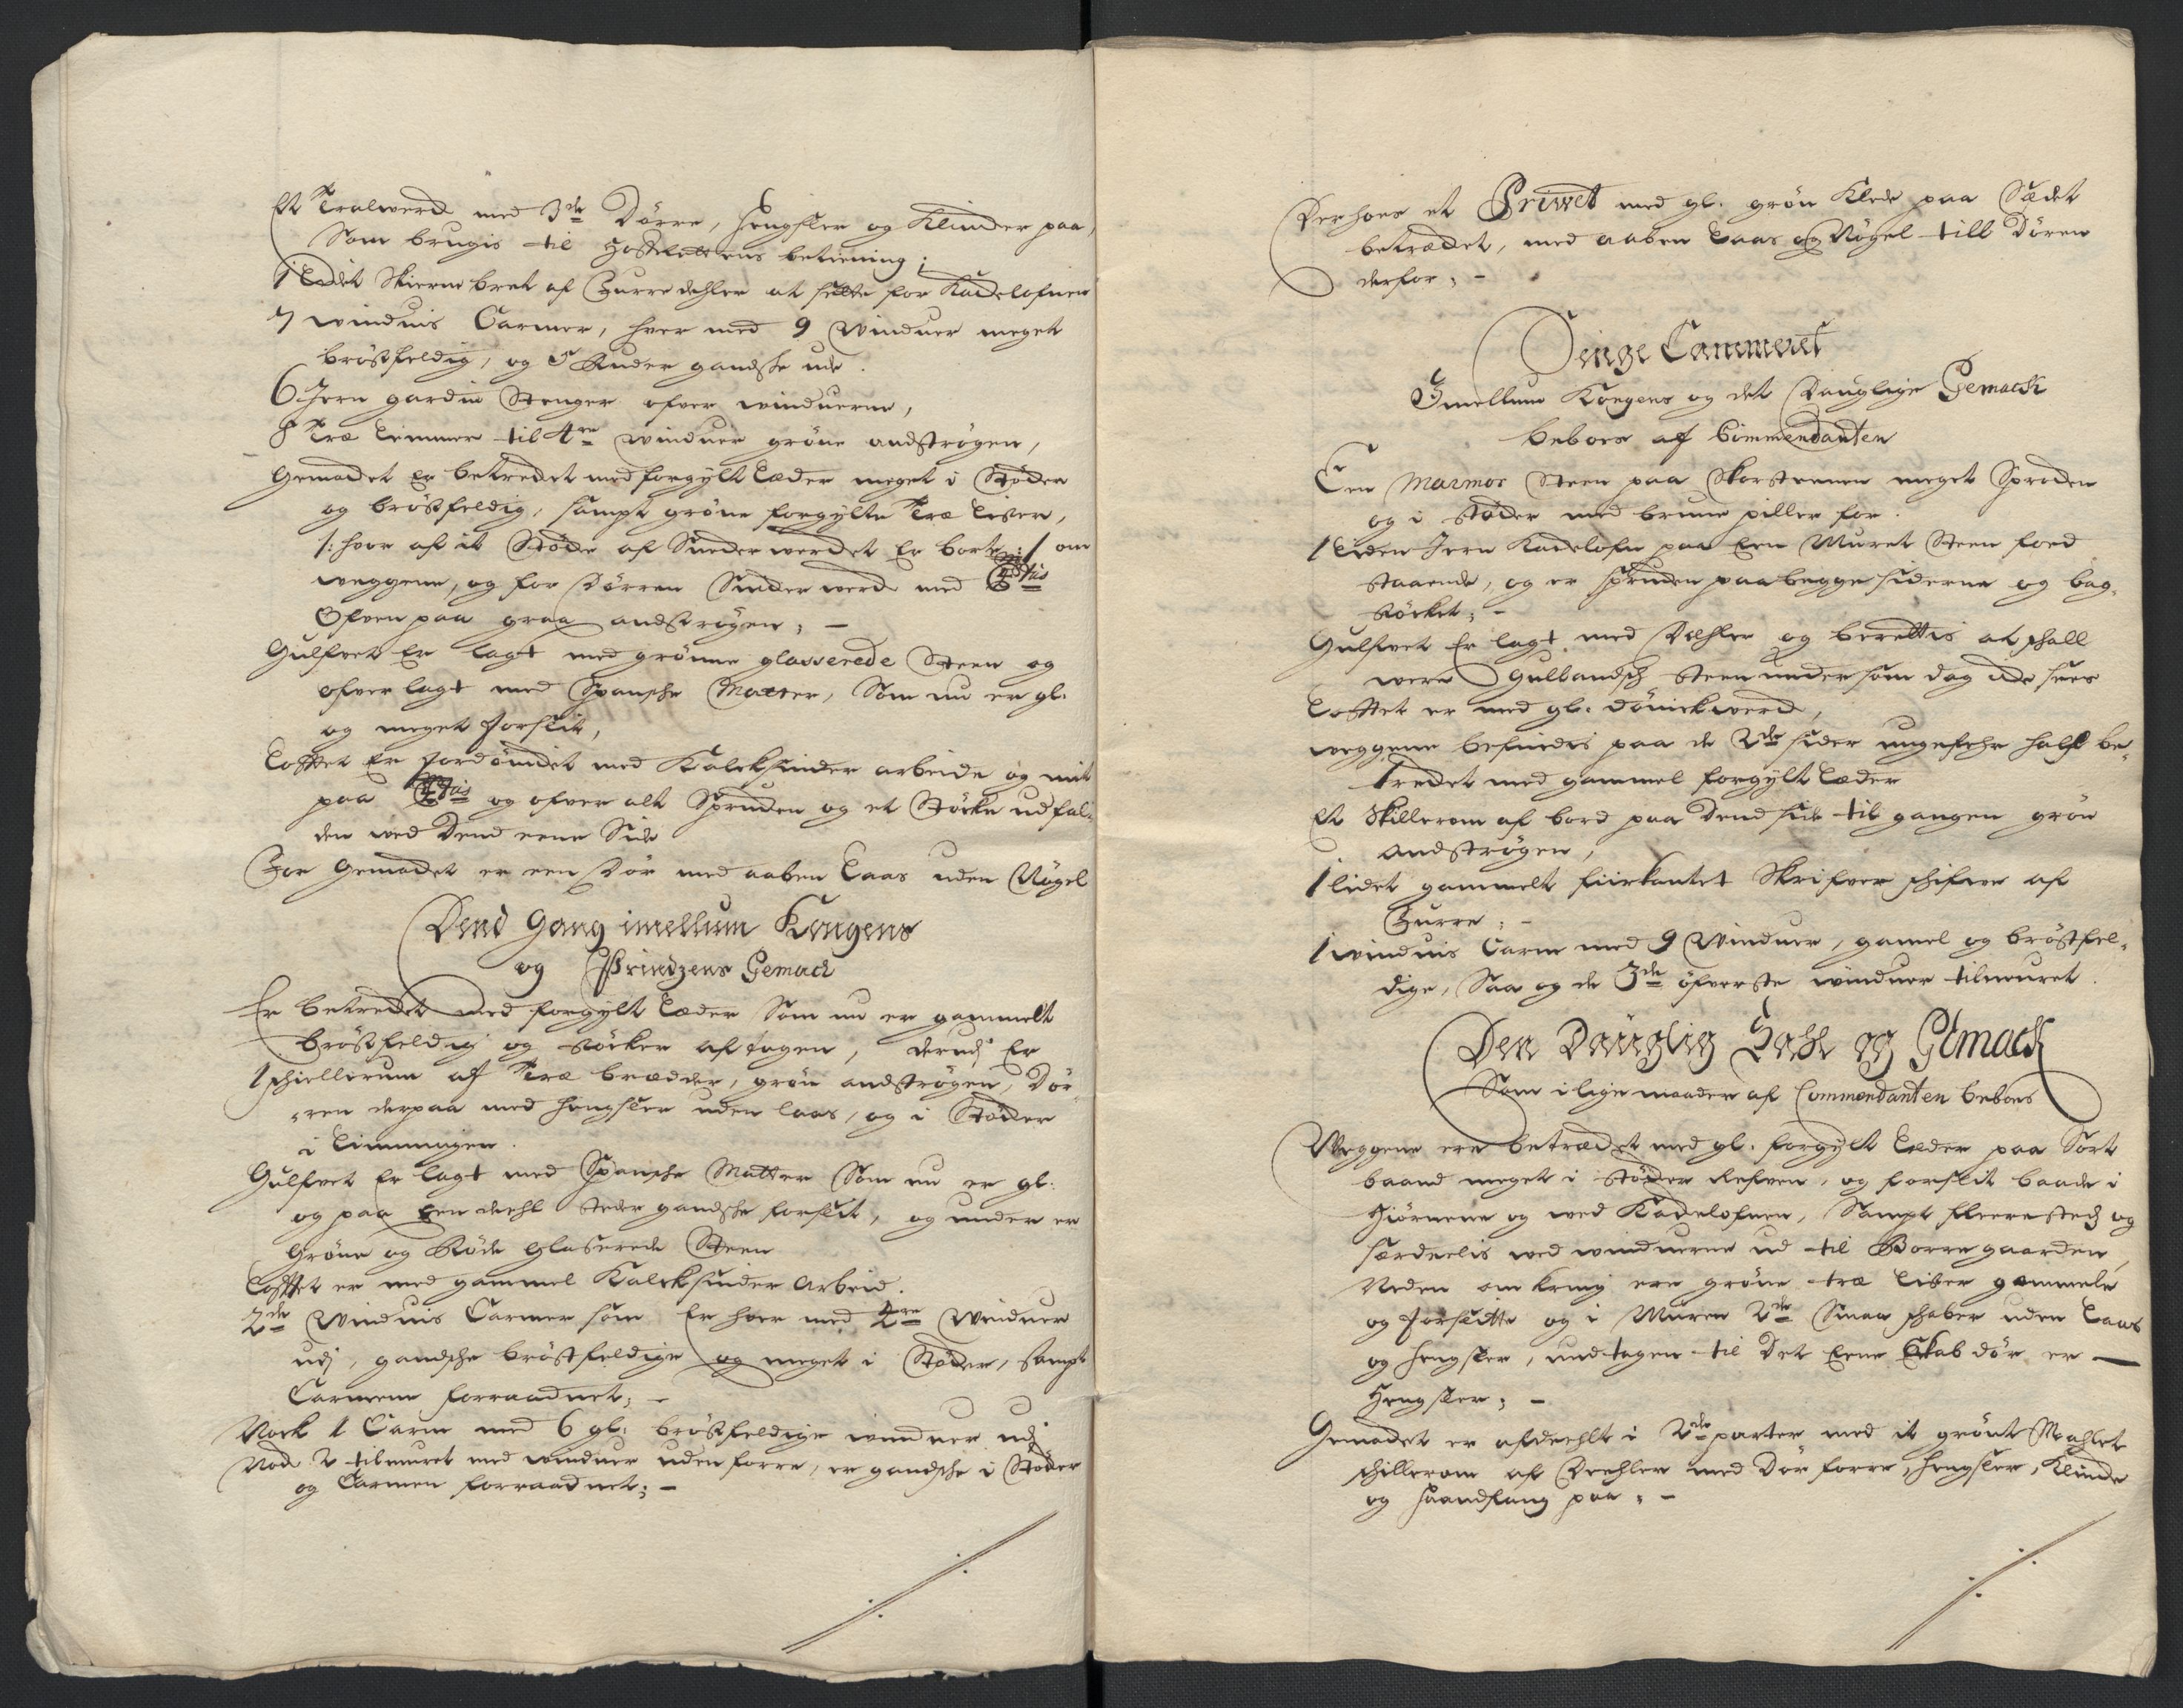 Et Tralwerck med 3de Dörre, Hengsler og Klincker paa,
Som brugis til Hoffolckens betiening;
1 Lidet Skierme bret af Furre dehler at sette for Kackelofnen
7 winduis Carmer, hver med 9 Winduer meget
bröstfeldig, og 5 Ruder gandske ude.
6 Jern gardin Stenger ofver winduerne,
8 Træ Lemmer til 4re winduer gröne andströgen,
Gemacket er betrecket med forgylt Læder meget i Stöcker
og bröstfeldig, sampt gröne forgylte Træ Lister,
/: hvor af it Stöcke af Sneckerwercket er borte :/ om
weggene, og for Dörren Snickerwerck med
Ofven paa graa andströgen; -
Gulfvet Er lagt med grönne glasserede Steen og
ofver lagt med Spanske Matter, Som nu er gl:
og meget forslit,
Lofftet Er med Kalcksnider arbeide og mit
paa og ofver alt Sprucken og et Stöcke udfal-
den ved Dend eene Side
For Gemacket er een Dör med aaben Laas uden Nögel
Dend Gang imellum Kongens
og Printzens Gemack
Er betrecket med forgylt Læder Som nu er gammelt
bröstfeldig og stöcker aftagen, derudj Er
1 schillerum af Træ brædder, grön andströgen, Dör-
ren derpaa med hengsler uden laas, og i Stöcker
i Limningen.
Gulfvet Er lagt med Spanske Matter Som nu er gl:
og paa Een deehl steder gandske forslit, og under er
Gröne og Röde Glaserede Steen
Lofftet er med gammel Kalcksnider Arbeid.
2de Winduis Carmer som Er hver med 4re Winduer
udj, gandske bröstfeldige og meget i Stöcker, sampt
Carmene forraadnet; -
Nock 1 Carm med 6 gl: bröstfeldige winduer udj
Nock 2 tilmuret med winduer uden forre, er gandske i Stöcker
og Carmen forraadnet; -
Der hoes et Privvet med gl. grön Klede paa Sædet
betrædet, med aaben Laas og Nögel till Dören
derfor; -
Senge Cammeret
Imellum Kongens og det Dauglige Gemack
beboes af Commendanten
Een Marmor Steen paa Skorstenen meget Sprocken
og i stöcker med brune piller for.
1 Liden Jern Kackelofn paa Een Muret Steen foed
staaende, og er sprucken paa begge siderne og bag-
stöcket; -
Gulfvet Er lagt med Dehler og berettis at skall
were Gullandsch Steen under som dog icke sees
Lofftet er med gl. dönickwerck,
weggene befindis paa de 2de sider ungefehr half be-
trecket med gammel forgylt Læder
Et Skillerom af bord paa Dend side til gangen grön
andströgen,
1 lidet gammelt fiirkantet Skrifver schifve af
Furre; -
1 winduis Carm med 9 Winduer, gamel og bröstfel-
dige, Saa og de 3de öfverste winduer tilmuret.
Den Dauglig Sahl og Gemack
Som i lige maader af Commendanten beboes
Weggene ere betræcket med gl. forgylt Læder paa Sort
baand meget i stöcker Refven, og forslit baade i
Hiörnene og wed Kackelofnen, Sampt fleere stedz og
særdeelis wed winduerne ud til Borregaarden,
Neden om kring ere gröne træ lister gammele
og forslitte og i Muren 2de Smaa schaber uden Laas
og Hengsler, undtagen til Det Eene Skab dör er
Hengsler; -
Gemacket er afdeehlt i 2de parter med it grönt Mahlet
schillerom af Deehler med Dör forre, hengsler, Klincke
og haandfang paa; -